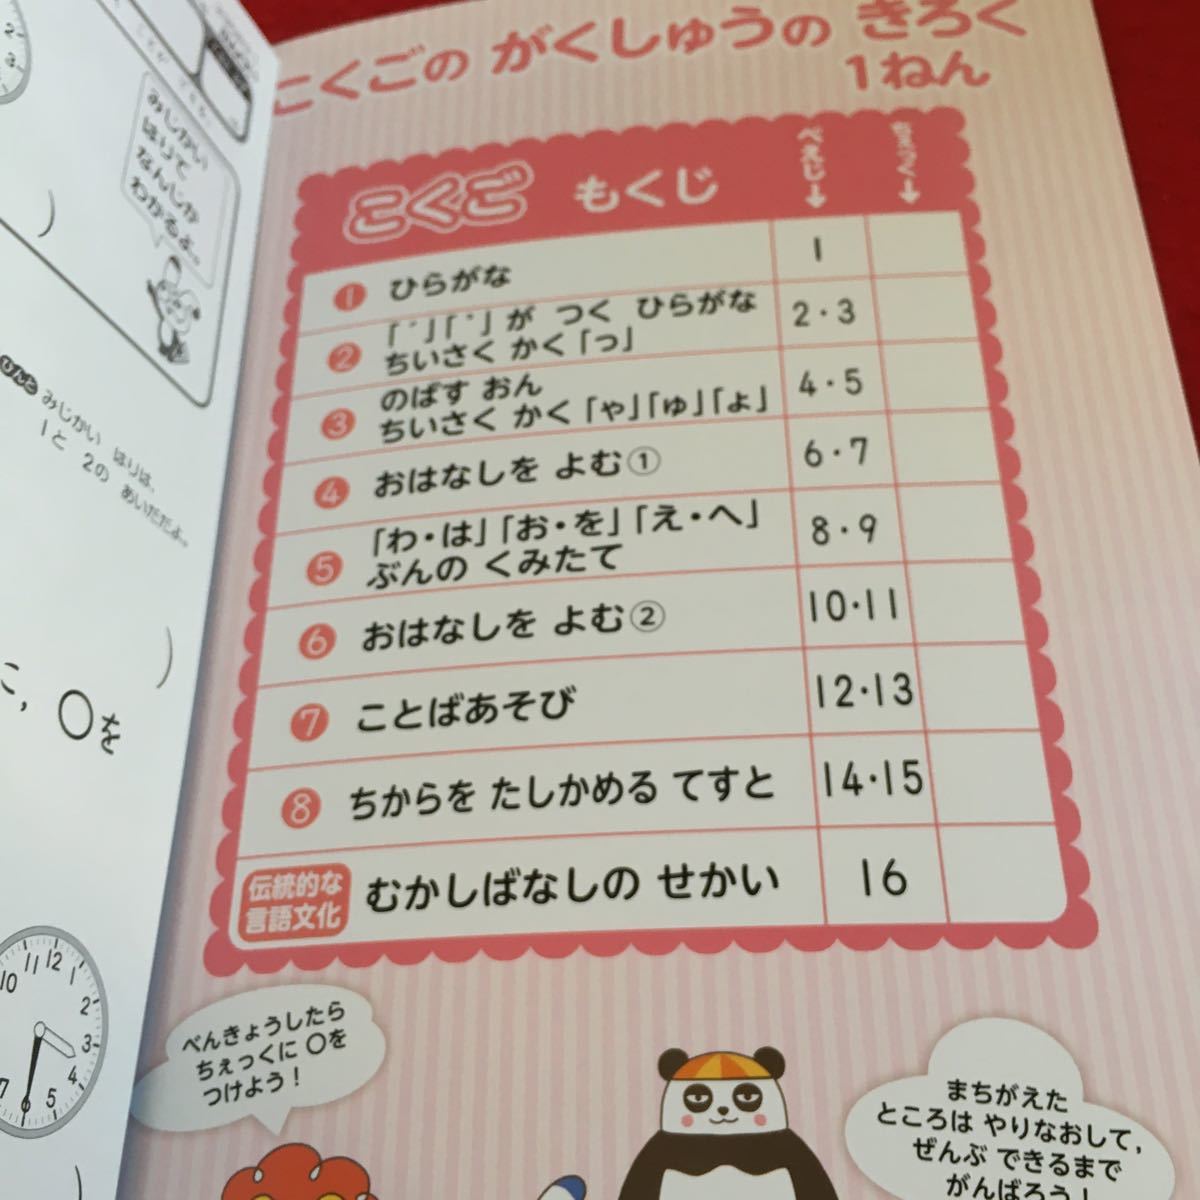 みじかい
はりで
なんじか
わかるよ。
ひんと みじかい はりは、
1と 2の あいだだよ。
に、○を
10 11 12 1 2 3 4 5 6 7
こくごの がくしゅうの きろく
1ねん
こくご もくじ ぺえじ↓ ちぇっく↓
1 ひらがな 1
2 「゛」「゜」が つく ひらがな
ちいさく かく「っ」 2・3
3 のばす おん
ちいさく かく「ゃ」「ゅ」「ょ」 4・5
4 おはなしを よむ① 6・7
5 「わ・は」「お・を」「え・へ」
ぶんの くみたて 8・9
6 おはなしを よむ② 10・11
7 ことばあそび 12・13
8 ちからを たしかめる てすと 14・15
伝統的な
言語文化 むかしばなしの せかい 16
べんきょうしたら
ちぇっくに ○を
つけよう！
まちがえた
ところは やりなおして、
ぜんぶ できるまで
がんばろう！